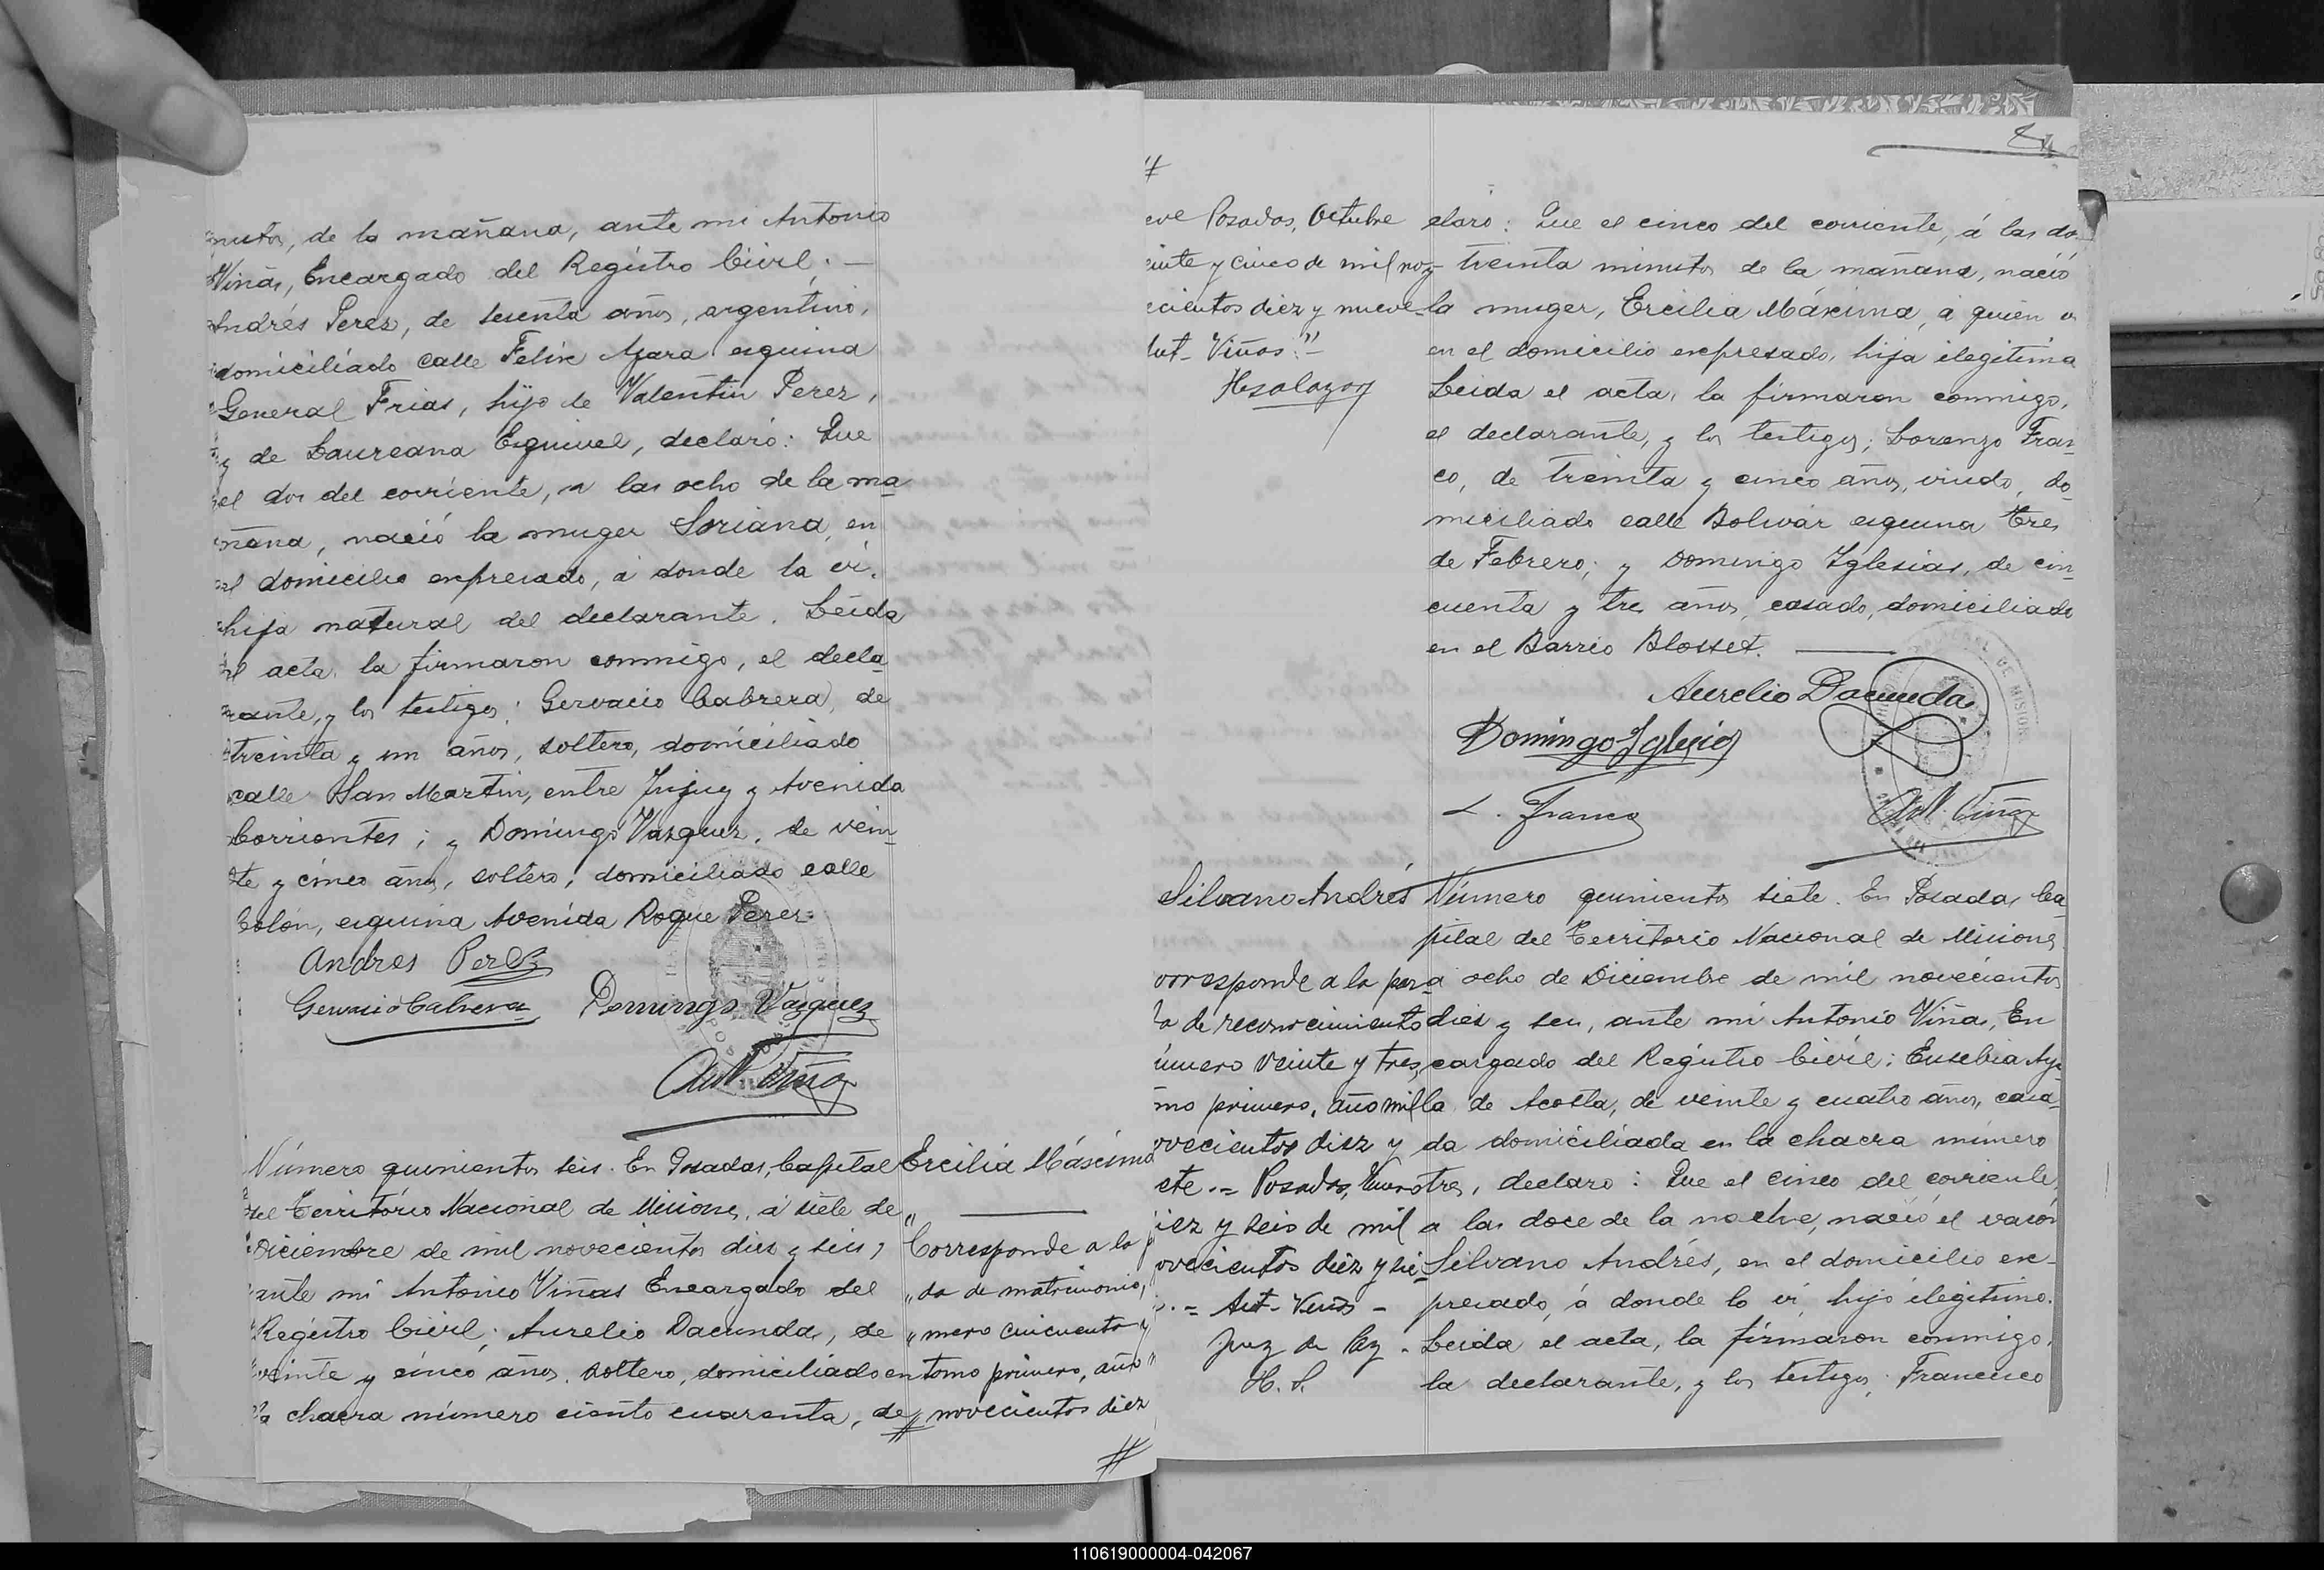 nutos, de la mañana, ante mi Antonio
Viñas, Encargado del Registro Civil; —
Andrés Perez, de sesenta años, argentino,
domiciliado calle Felix Azara esquina
General Frias, hijo de Valentin Perez,
y de Laureana Esquivel, declaró: Que
el dos del corriente, a las ocho de la ma
ñana, nació la muger Soriana, en
el domicilio expresado, á donde la ví,
hija natural del declarante. Leida
el acta, la firmaron conmigo, el decla
rante, y los testigos: Gervacio Cabrera, de
treinta y un años, soltero, domiciliado
calle San Martin, entre Jujuy y Avenida
Corrientes; y Domingo Vazquez, de vein
te y cinco años, soltero, domiciliado calle
Colón, esquina Avenida Roque Perez.
Andres Perez
Gervacio Cabrera Domingo Vazquez
Ant. Viñas
Número quinientos seis. En Posadas, Capital
del Território Nacional de Misiones, á siete de
Diciembre de mil novecientos diez y seis,
ante mi Antonio Viñas Encargado del
Registro Civil; Aurelio Dacunda, de
veinte y cinco años, soltero, domiciliado en
la chacra número ciento cuarenta, de
Ercilia Máxima
" ———
Corresponde a la p
"da de matrimonio,
"mero cincuenta y
tomo primero, año"
" novecientos diez
#
#
eve Posadas, Octubre
einte y cinco de mil no
ecientos diez y nueve
Ant- Viños"-
Hsalazar
claró: Que el cinco del corriente, á las do
treinta minutos de la mañana, nació
la muger, Ercilia Máxima, á quién v
en el domicilio expresado, hija ilegitima
Leida el acta, la firmaron conmigo,
el declarante, y los testigos; Lorenzo Fran
co, de treinta y cinco años, viudo, do
miciliado calle Bolivar esquina Tres
de Febrero; y Domingo Iglesias, de cin
cuenta y tres años, casado, domiciliado
en el Barrio Blosset. ———
Aurelio Dacunda
Domingo Iglesias
L. Franco Ant. Viñas
Silvano Andrés
orresponde a la par
da de reconocimiento
úmero veinte y tres,
mo primero, año mil
ovecientos diez y
ete.= Posadas, Enero
diez y seis de mil
ovecientos diez y sie
.= Ant- Viños -
Juez de Paz.
H. S.
Número quinientos siete. En Posadas, Ca
pital del Territorio Nacional de Misiones
a ocho de Diciembre de mil novecientos
diez y seis, ante mi Antonio Viñas, En
cargado del Registro Civil; Eusebia Ay
la de Acosta, de veinte y cuatro años, casa
da domiciliada en la chacra número
tres, declaró: Que el cinco del corriente,
a las doce de la noche, nació el varón
Silvano Andrés, en el domicilio ex-
presado, á donde lo ví, hijo ilegitimo.
Leida el acta, la firmaron conmigo,
la declarante, y los testigos; Francisco
110619000004-042067